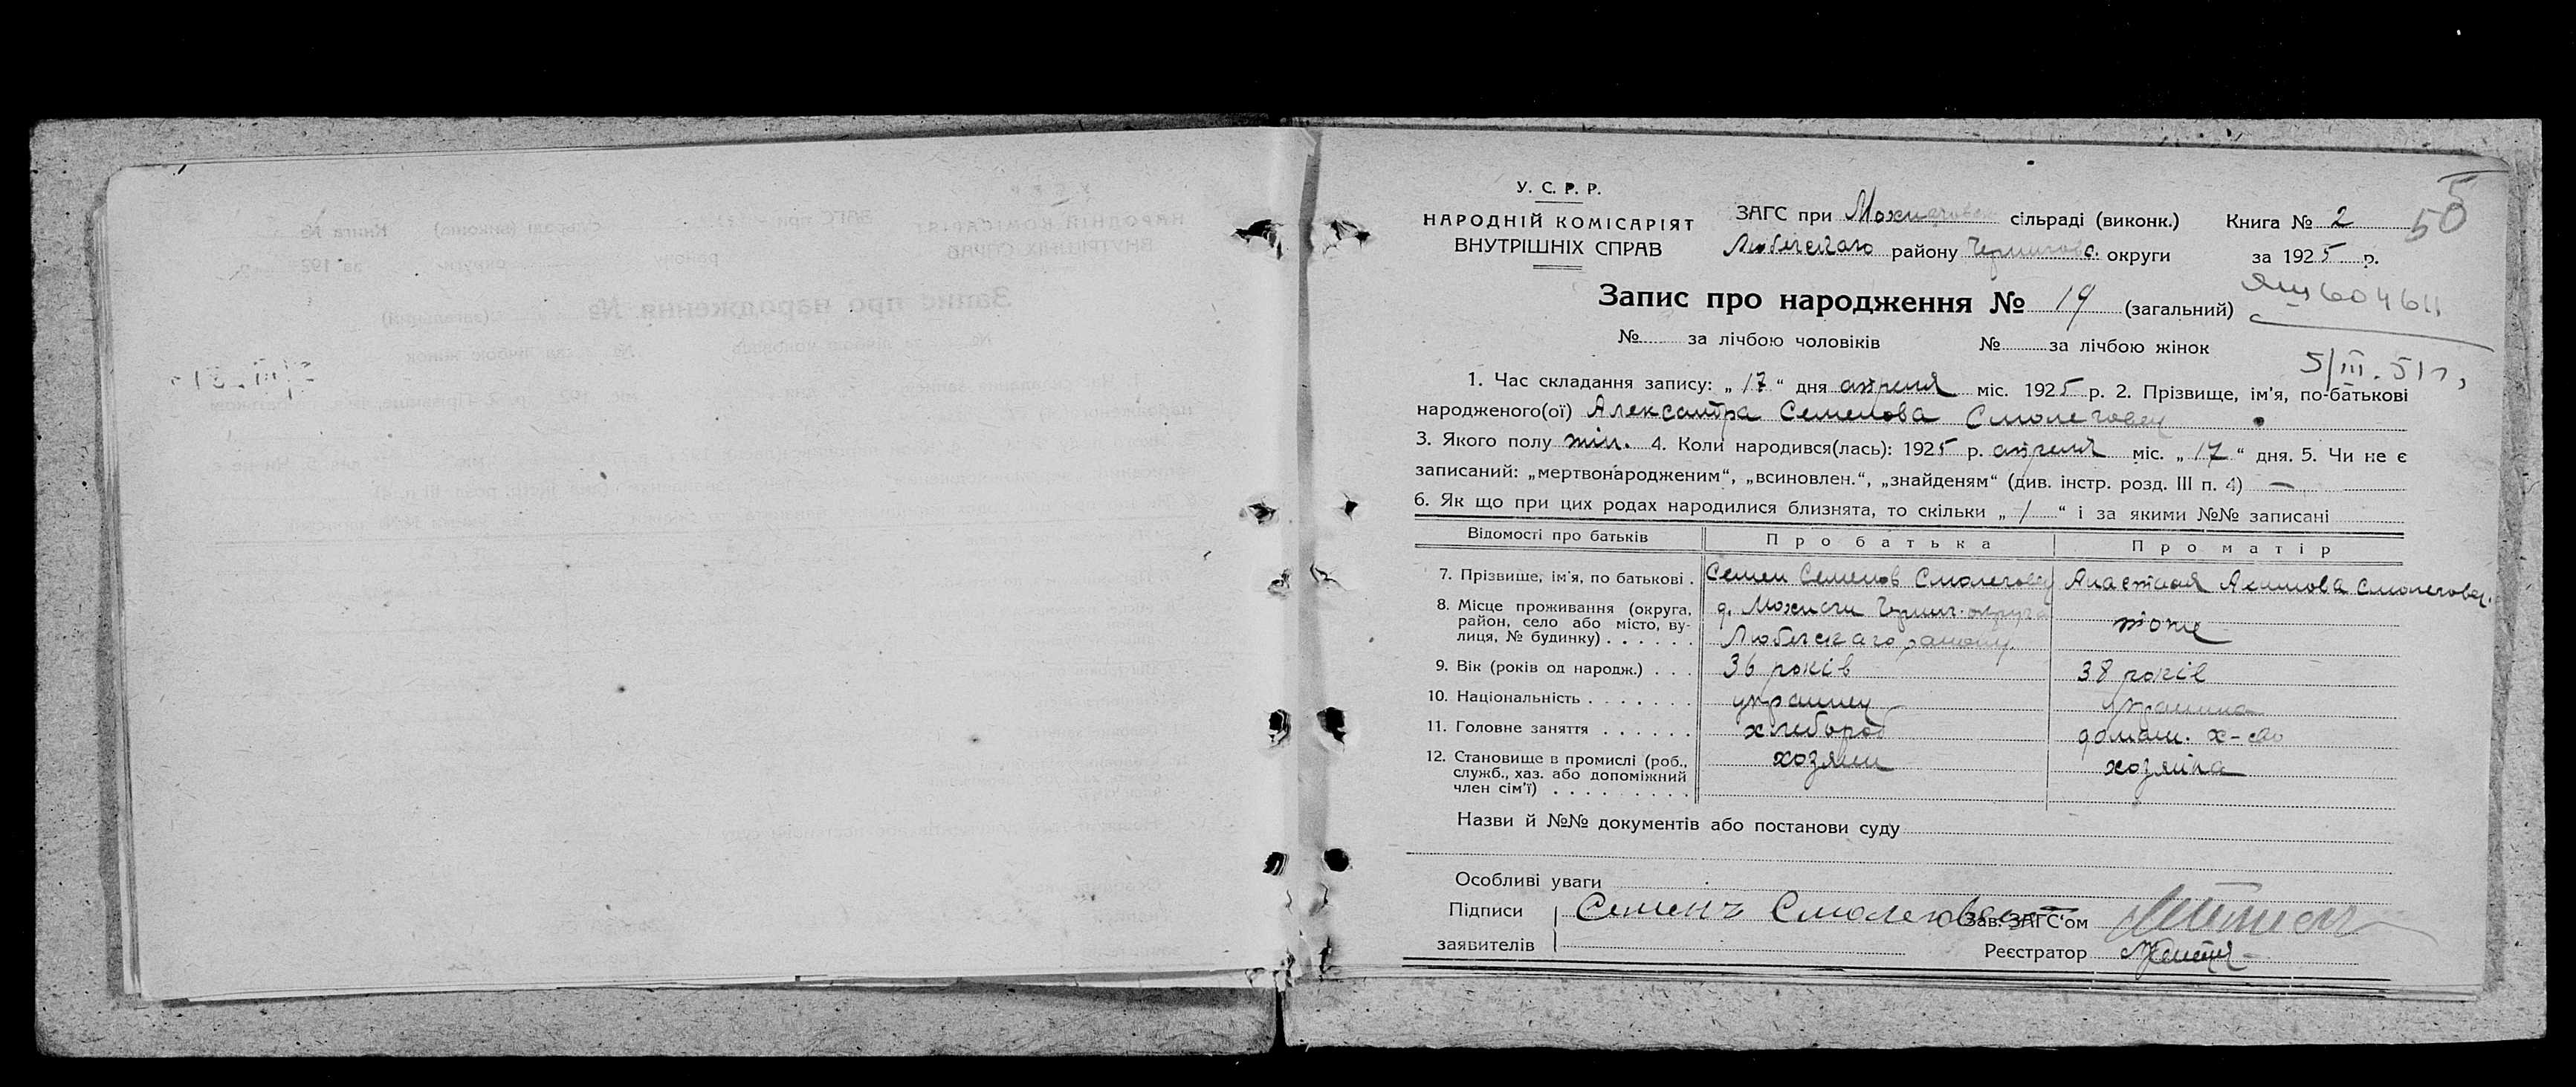 У. С. Р. Р.
НАРОДНІЙ КОМІСАРІЯТ
ВНУТРІШНІХ СПРАВ
ЗАГС при сільраді (виконк.)
Любечскаго району округи
Книга № 2
за 1925 р.
50
Запис про народження № 19 (загальний)
№ за лічбою чоловіків № за лічбою жінок
5/III. 51 г.
1. Час складання запису: „ 17 “ дня апреля міс. 1925 р. 2. Прізвище, ім'я, по-батькові
народженого(ої) Александра Семенова Смолеговец
3. Якого полу жін. 4. Коли народився(лась): 1925 р. апреля міс. „ 17 “ дня. 5. Чи не є
записаний: „мертвонародженим“, „всиновлен.“, „знайденям“ (див. інстр. розд. III п. 4) —
6. Як що при цих родах народилися близнята, то скільки „ / “ і за якими №№ записані
Відомості про батьків Про батька Про матір
7. Прізвище, ім'я, по батькові . Семен Семенов Смолеговец Анастасия Акимова Смолеговец.
8. Місце проживання (округа, район, село або місто, ву-
лиця, № будинку) . . . . . . д. Можисчи Черниг. округа
Любечскаго району. тоже
9. Вік (років од народж.) . . . 36 років 38 років
10. Національність . . . . . . . украинец украинка
11. Головне заняття . . . . . . хлебороб домаш. х-во
12. Становище в промислі (роб.,
служб., хаз. або допоміжний
член сім'ї) . . . . . . . . . хозяин хозяйка
Назви й №№ документів або постанови суду
Особливі уваги
Підписи Семенъ Смолеговец Зав. ЗАГС'ом
заявителів Реєстратор